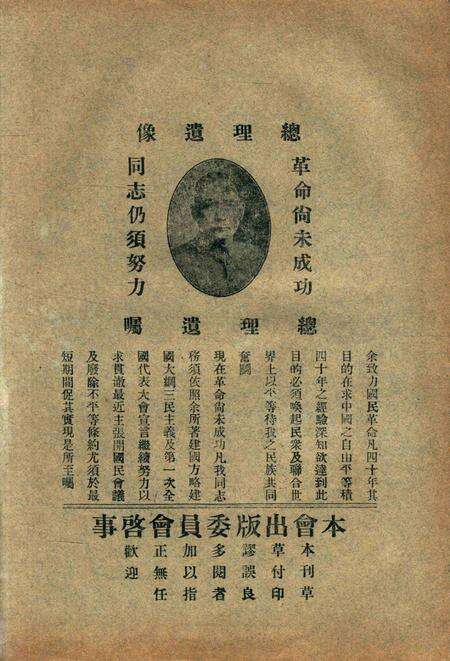 總理遺像
革命尚未成功
同志仍須努力
總理遺囑
余致力國民革命凡四十年其
目的在求中國之自由平等積
四十年之經驗深知欲達到此
目的必須喚起民眾及聯合世
界上以平等待我之民族共同
奮鬭
現在革命尚未成功凡我同志
務須依照余所著建國方略建
國大綱三民主義及第一次全
國代表大會宣言繼續努力以
求貫澈最近主張開國民會議
及廢除不平等條約尤須於最
短期間促其實現是所至囑
本會出版委員會啓事
本刊草
草付印
謬誤良
多閱者
加以指
正無任
歡迎